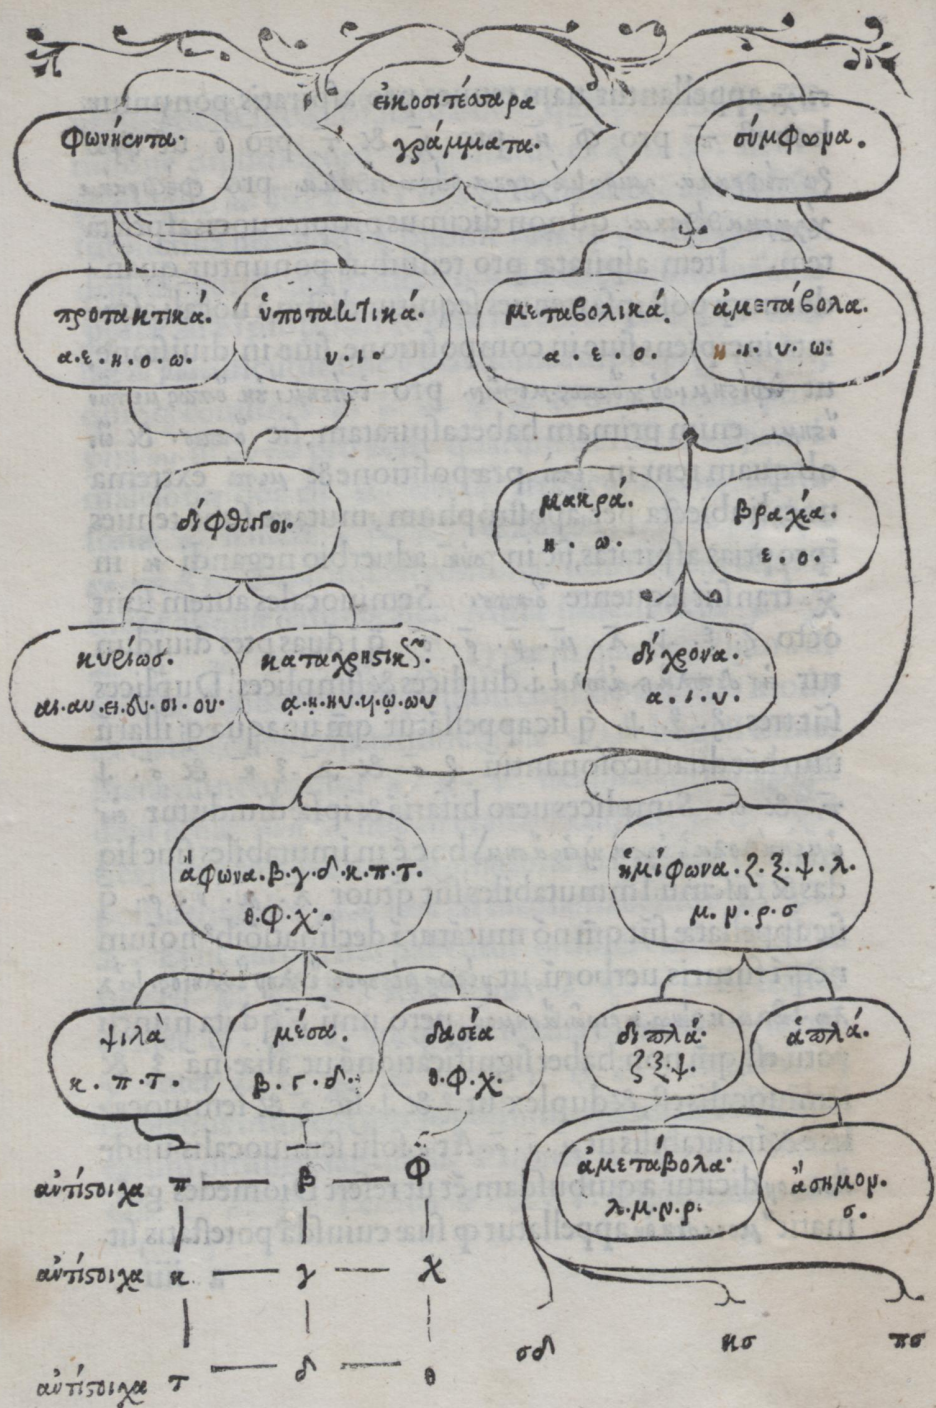 εἰκοσιτέσσαρα
γράμματα.
φωνήεντα.
σύμφωνα.
προτακτικά.
α.ε.η.ο.ω.
ὑποτακτικά.
υ.ι.
μεταβολικά.
α.ε.ο.
ἀμετάβολα.
η.ι.υ.ω.
δίφθογγοι.
μακρά.
η.ω.
βραχέα.
ε.ο.
κυρίωσ.
αι.αυ.ει.ευ.οι.ου.
καταχρηστικῶς.
ᾳ.ῃ.ηυ.υι.ῳ.ωυ
δίχρονα.
α.ι.υ.
ἄφωνα.β.γ.δ.κ.π.τ.
θ.φ.χ.
ἡμίφωνα.ζ.ξ.ψ.λ.
μ.ν.ρ.σ
ψιλὰ
κ.π.τ.
μέσα.
β.γ.δ.
δασέα
θ.φ.χ.
διπλά.
ζ.ξ.ψ.
ἁπλά.
ἀμετάβολα.
λ.μ.ν.ρ.
ἄσημον.
σ.
ἀντίστοιχα π β φ
ἀντίστοιχα κ γ χ
σδ κσ πσ
ἀντίστοιχα τ δ θ